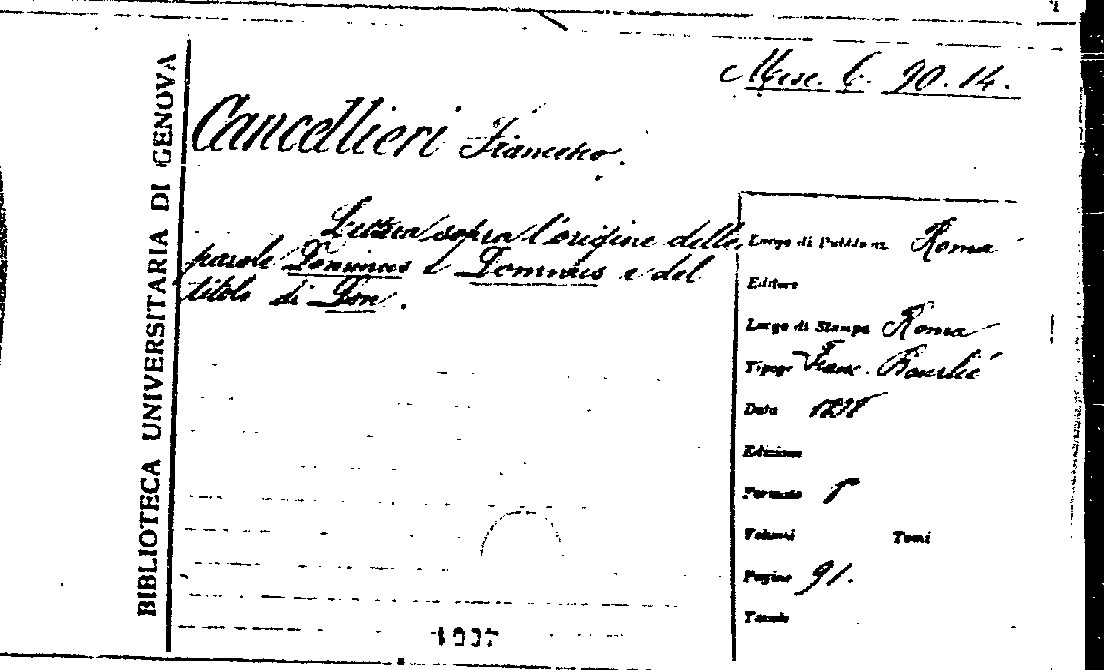 BIBLIOTECA UNIVERSITARIA DI GENOVA
Misc. C. 90.14.
Cancellieri Francesco.
Lettera sopra l'origine delle
parole Dominus e Domnus e del
titolo di Don.
Luogo di Pubblicaz Roma
Editore
Luogo di Stampa Roma
Tipogr Franc. Bourlié
Data
Edizione
Formato 8
Volumi Tomi
Pagine 91.
Tavole